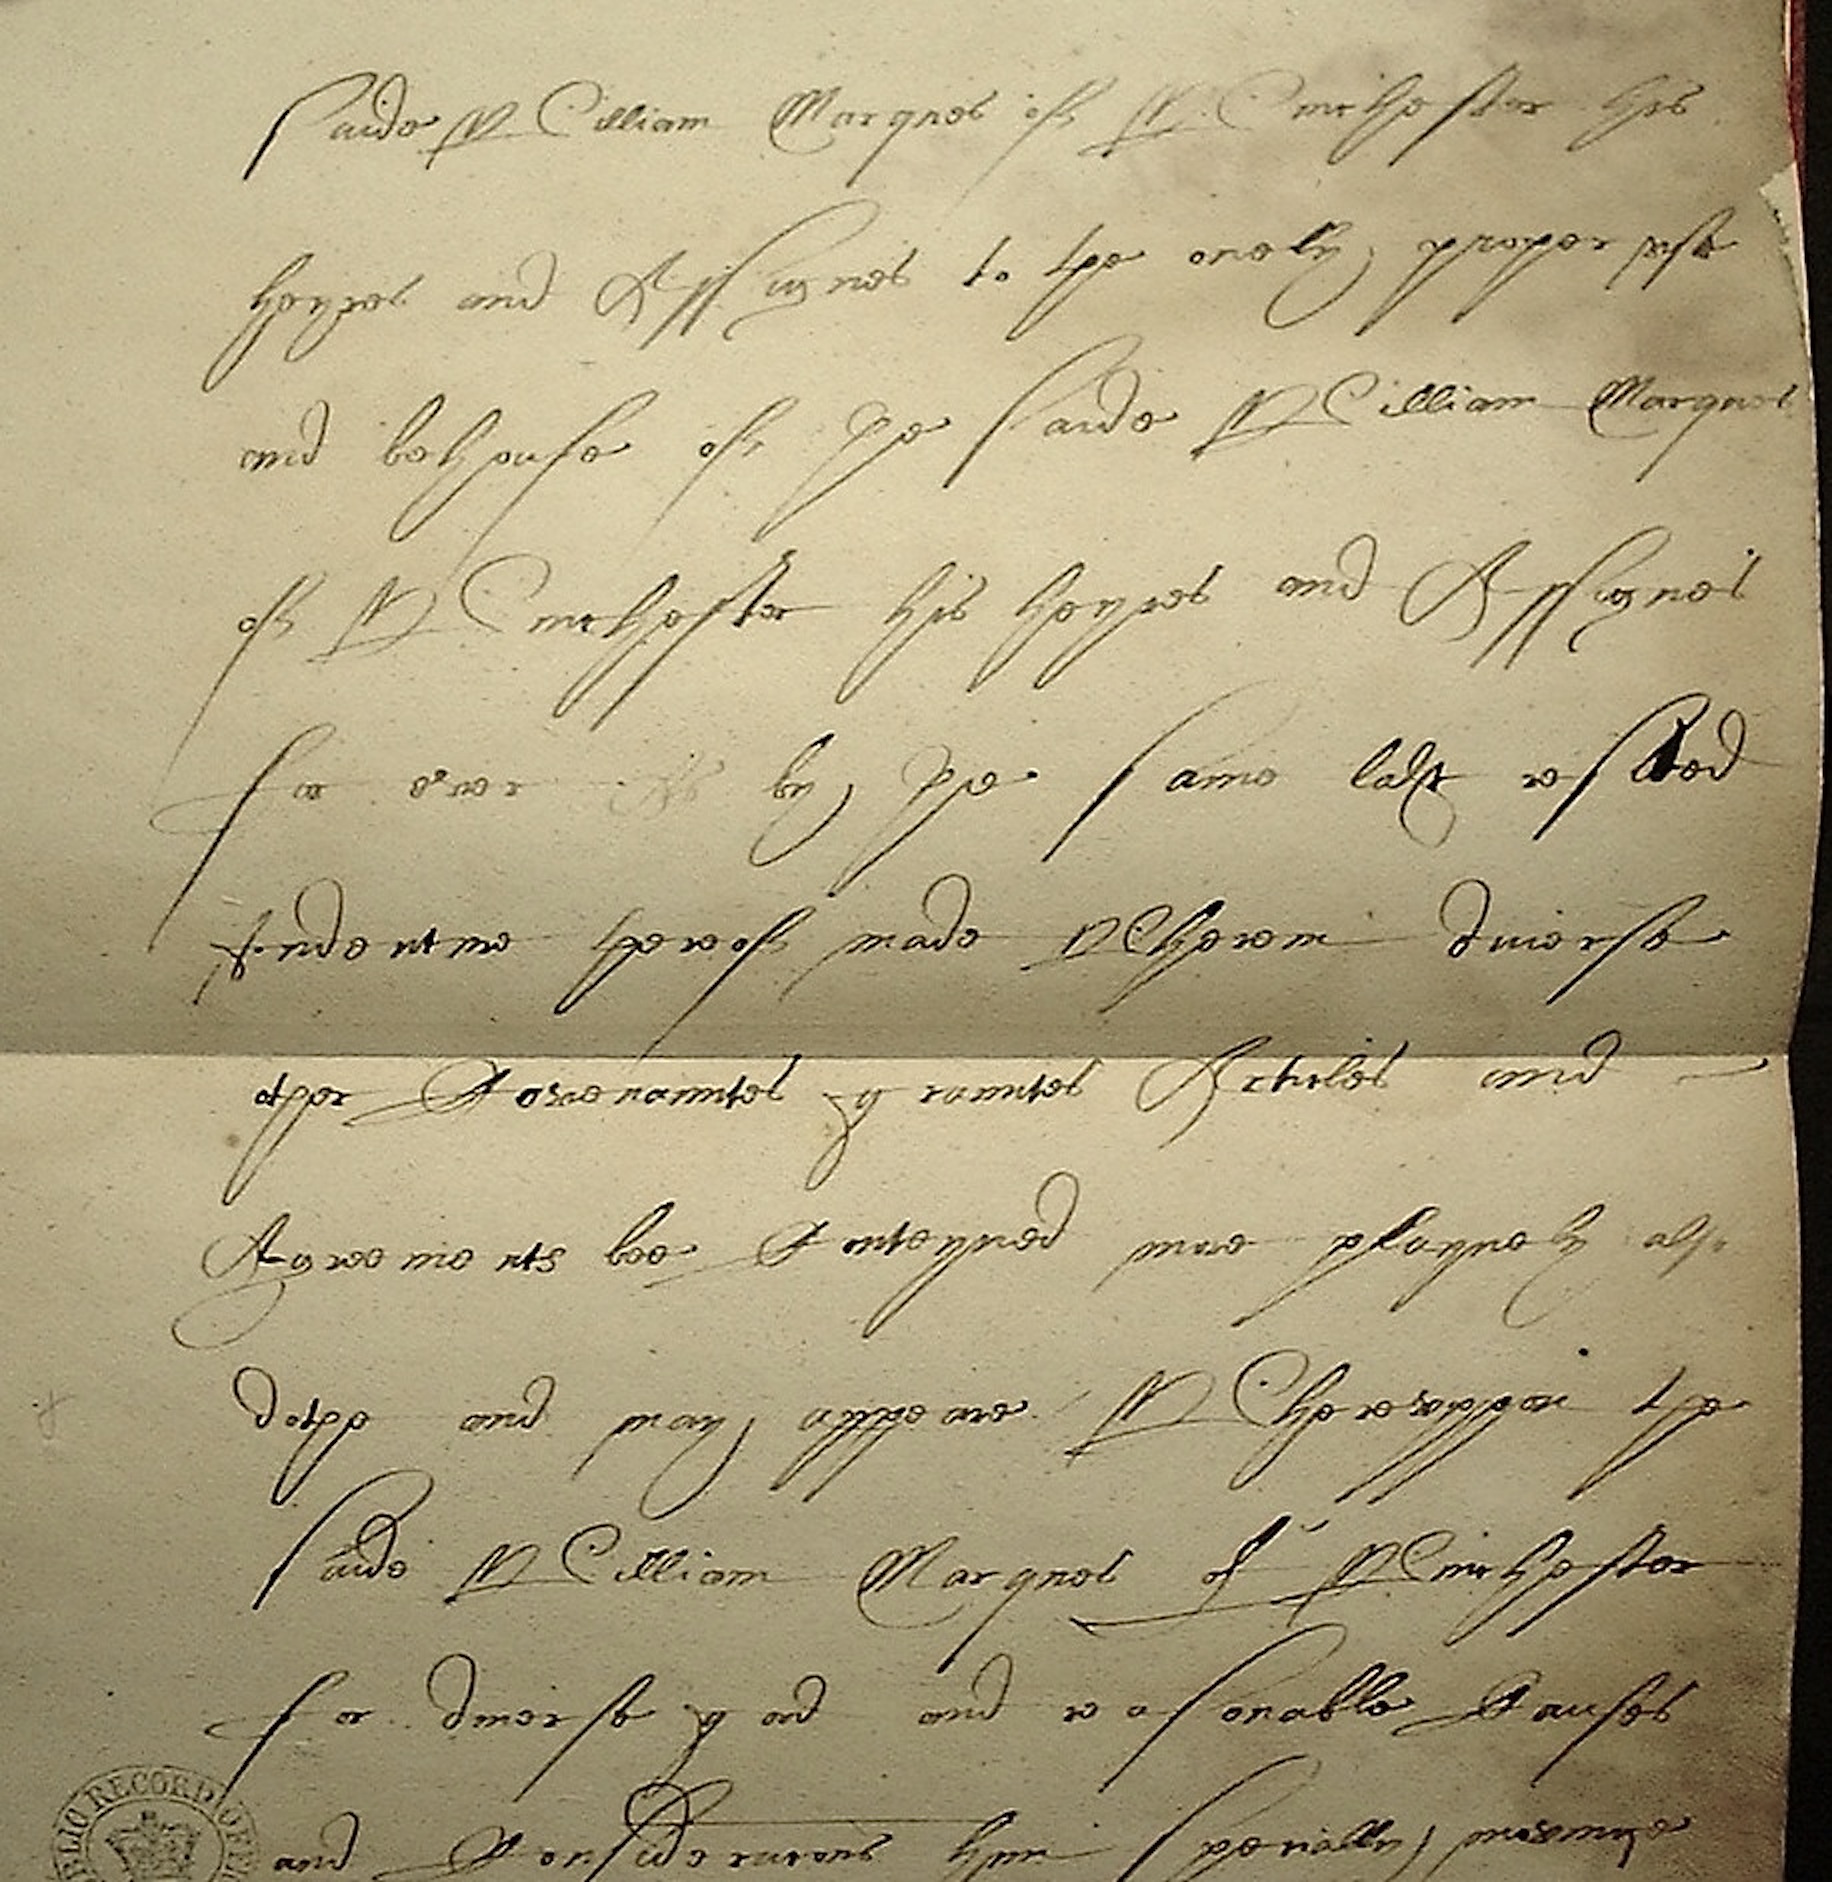 saide William Marques of Winchester his
heyres and Assignes to the onely proper use
and behoufe of the saide William Marques
of Winchester his heyres and Assignes
for ever As by the same last resited
Indenture thereof made Wherein diverse
other Covenauntes grauntes Articles and
Agreements bee Conteyned more playnely also
dothe and may appeare Whereuppon the
saide William Marques of Winchester
for diverse good and reasonable Causes
and Consideracons him specially movinge
PUBLIC RECORD OFFICE